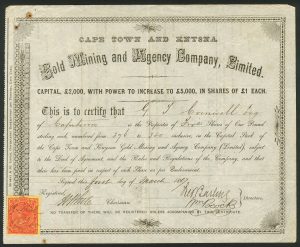 CAPE TOWN AND KNYSNA
Gold Mining and Agency Company, Limited.
CAPITAL, £2,000, WITH POWER TO INCREASE TO £5,000, IN SHARES OF £1 EACH.
This is to certify that G. J.
of Cape Town is the Proprietor of Shares of One Pound
sterling each numbered from 296 to 300 inclusive, in the Capital Stock of
the Cape Town and Knysna Gold Mining and Agency Company (Limited), subject
to the Deed of Agreement, and the Rules and Regulations of the Company, and that
there has been paid in respect of each Share
Signed this first day of March
Registered
Chairman
Directors.
NO TRANSFER OF THESE WILL BE REGISTERED UNLESS ACCOMPANIED BY THIS CERTIFICATE.